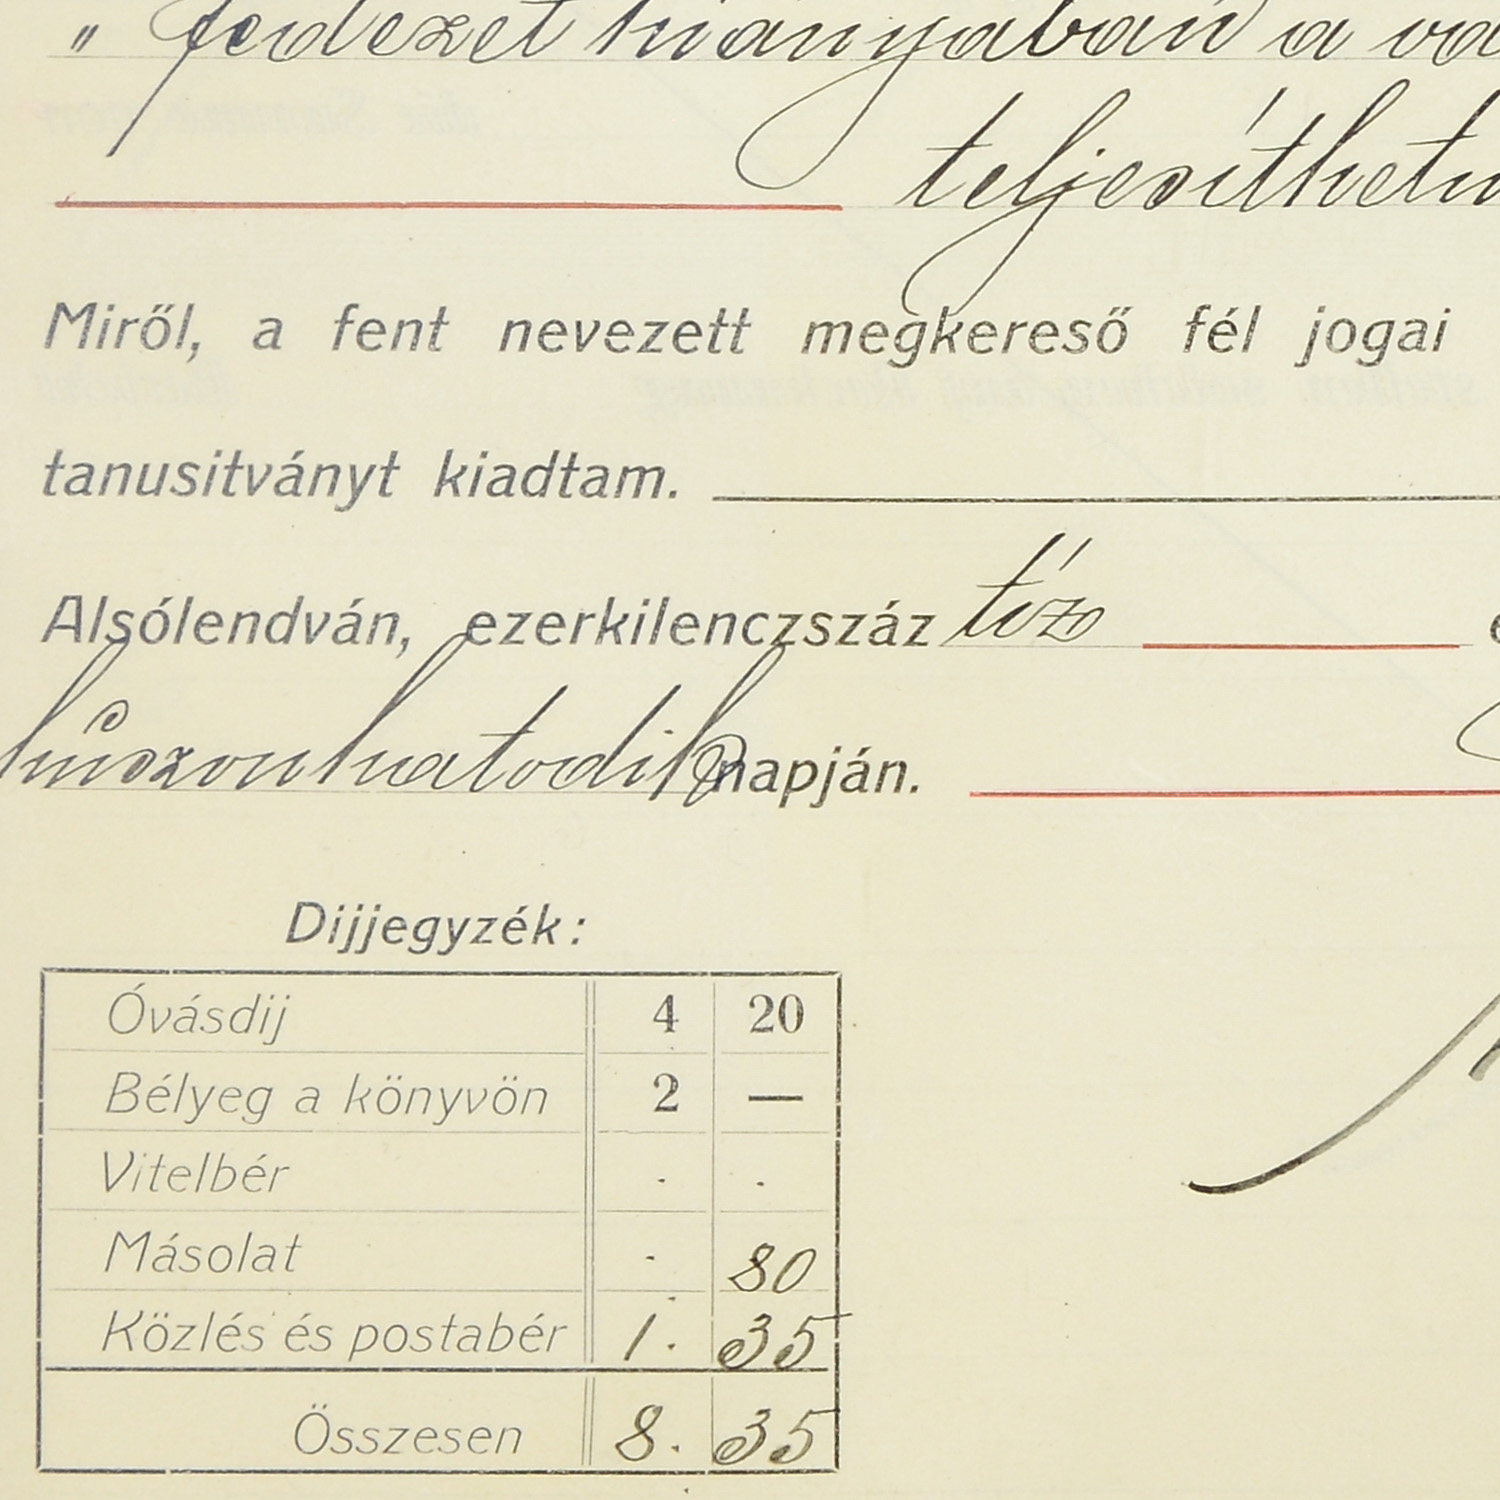 " fedezet hiányában a
teljesíthet
Miről, a fent nevezett megkereső fél jogai
tanusitványt kiadtam.
Alsólendván, ezerkilenczszáz tíz
húszonhatodik napján.
Dijjegyzék:
Óvásdij 4 20
Bélyeg a könyvön 2 —
Vitelbér . .
Másolat . 80
Közlés és postabér 1. 35
Összesen 8. 35